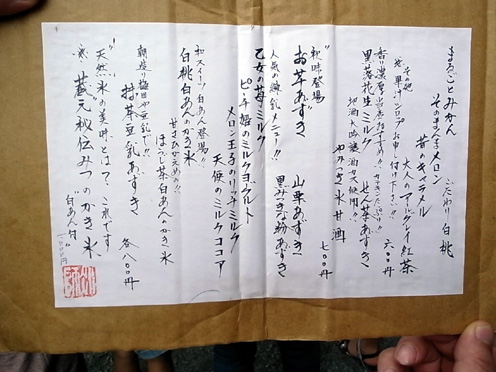 まるごとみかん
こだわり白桃
そのまんまメロン
昔のキャラメル
大人のアールグレイ紅茶
その他
果汁シロップお申し付け下さい!!
六〇〇円
香り濃厚
せん茶あずき
黒落花生ミルク
地酒大吟醸酒かす使用!!
やみつき氷甘酒
七〇〇円
秋味登場
お芋あずき
山栗あずき
人気の練乳メニュー!!
黒みつきな粉あずき
乙女の苺ミルク
天使のミルクココア
ピーチ姫のミルクヨーグルト
メロン王子のリッチミルク
和スイーツ白あん登場!!
白桃白あんかき氷
甘さひかえめ!!
ほうじ茶白あんかき氷
豆乳で!!
抹茶豆乳あずき
各八〇〇円
"天然氷の美味とは?これです"
蔵元秘伝みつのかき氷
"白あん付"
一〇〇〇円